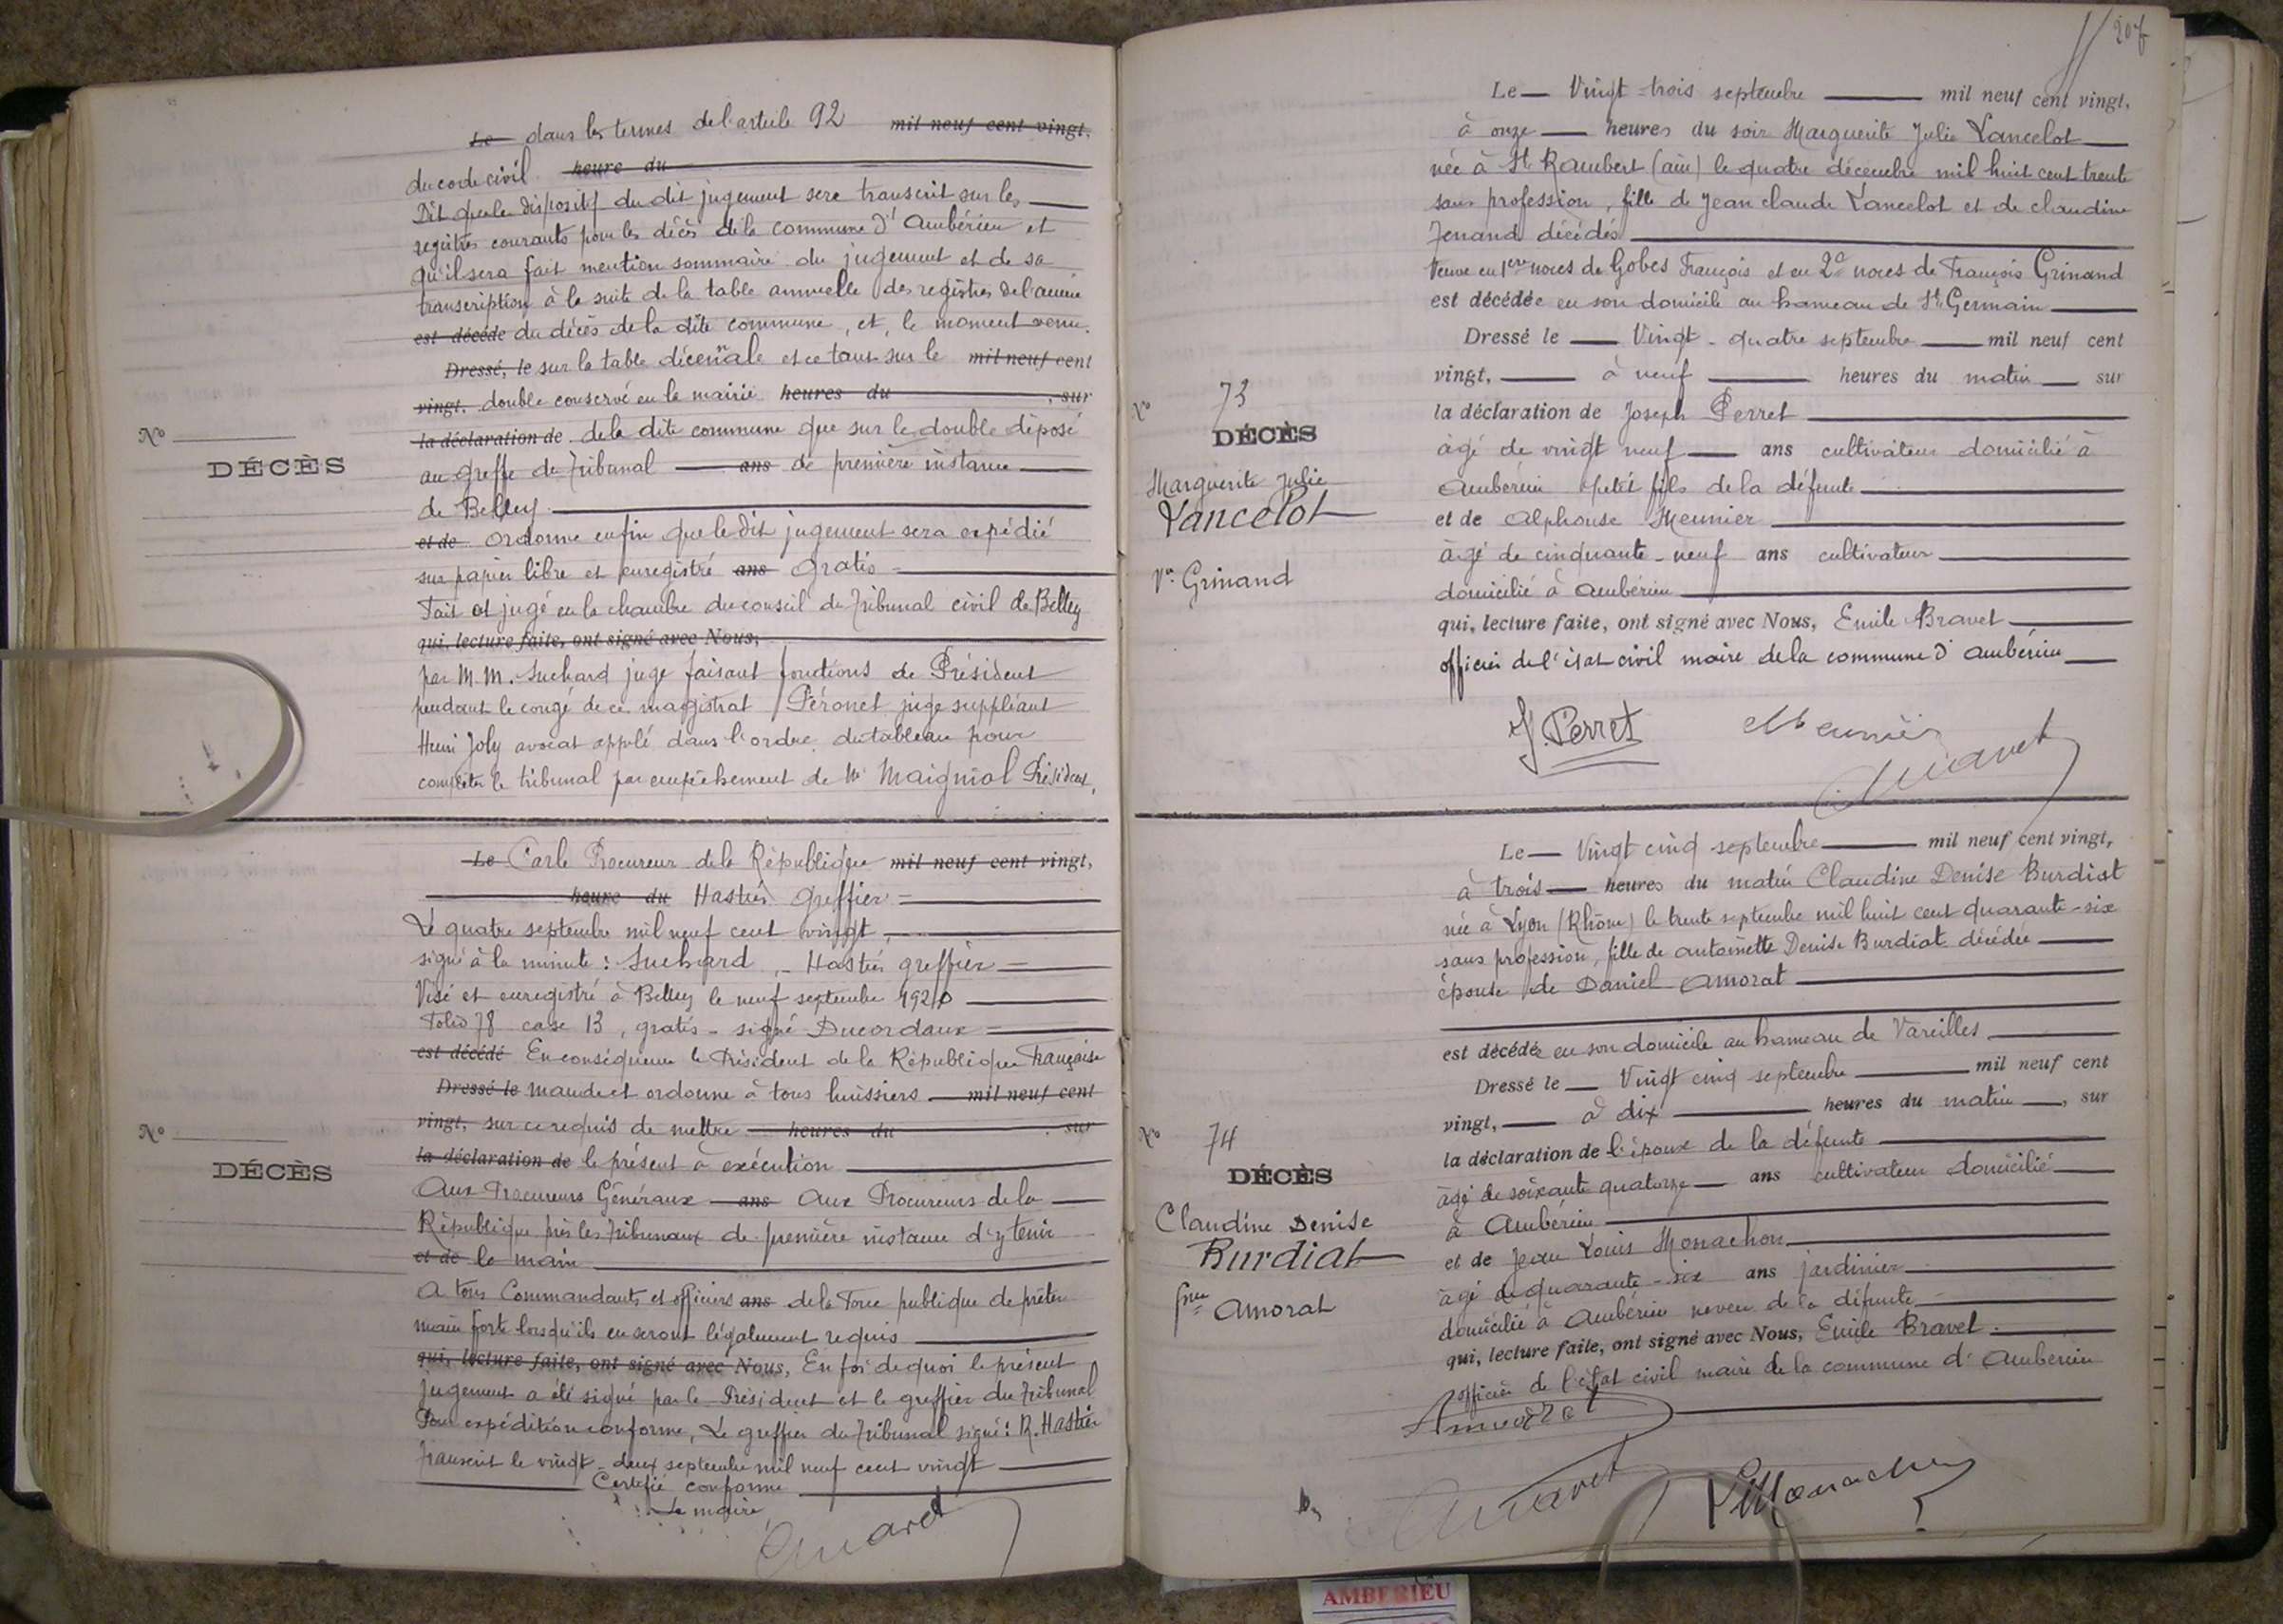 Le dans les termes de l'article 92 mil neuf cent vingt,
du code civil heure du
Dit que le dispositif du dit jugement sera transcrit sur les
registres courants pour les décès de la commune d'Ambérieu et
qu'il sera fait mention sommaire du jugement et de sa
transcription à la suite de la table annuelle des registres de l'année
est décédé du décès de la dite commune, et, le moment venu.
Dressé, le sur la table décennale et ce tant sur le mil neuf cent
vingt, double conservé en la mairie heures du , sur
la déclaration de de la dite commune que sur le double déposé
au greffe du Tribunal ans de première instance
de Belley
et de Ordonne enfin que le dit jugement sera expédié
sur papier libre et enregistré ans gratis
Fait et jugé en la chambre du conseil du Tribunal civil de Belley
qui, lecture faite, ont signé avec Nous,
par M.M. Suchard juge faisant fonctions de Président
pendant le congé de ce magistrat Péronet juge suppléant
Henri Joly avocat appelé dans l'ordre du tableau pour
compléter le tribunal par empêchement de Mr Maigniol Président,
N°
DÉCÈS
Le Carle Procureur de la République mil neuf cent vingt,
heure du Hastier Greffier
Le quatre septembre mil neuf cent vingt,
signé à la minute : Suchard, - Hastier greffier
Visé et enregistré à Belley le neuf septembre 1920
Folio 78 case 13, gratis - signé Ducordaux
est décédé En conséquence le Président de la République Française
Dressé le mande et ordonne à tous huissiers mil neuf cent
vingt, sur ce requis de mettre heures du , sur
la déclaration de le présent à exécution
Aux Procureurs Généraux ans Aux Procureurs de la
République près les Tribunaux de première instance d'y tenir
et de la main
A tous Commandants et officiers ans de la Force publique de prêter
main forte lorsqu'ils en seront légalement requis
qui, lecture faite, ont signé avec Nous, En foi de quoi le présent
jugement a été signé par le Président et le greffier du Tribunal
Pour expédition conforme, Le greffier du Tribunal signé : R. Hastier
Transcrit le vingt-deux septembre mil neuf cent vingt
Certifié conforme
Le maire
N°
DÉCÈS
207
Le Vingt-trois septembre mil neuf cent vingt,
à onze heures du soir Marguerite Julie Lancelot
née à St Rambert (ain) le quatre décembre mil huit cent trente
sans profession, fille de Jean claude Lancelot et de claudine
Jenand décédés
Veuve en 1ere noces de Gobes François et en 2e noces de François Grinand
est décédée en son domicile au hameau de St Germain
Dressé le Vingt-quatre septembre mil neuf cent
vingt, à neuf heures du matin sur
la déclaration de Joseph Perret
âgé de vingt neuf ans cultivateur domicilié à
Ambérieu petit fils de la défunte
et de Alphonse Meunier
âgé de cinquante-neuf ans cultivateur
domicilié à Ambérieu
qui, lecture faite, ont signé avec Nous, Emile Bravet
officier de l'état civil maire de la commune d'Ambérieu
J. Perret Meunier
N° 73
DÉCÈS
Marguerite Julie
Lancelot
Ve Grinand
Le Vingt cinq septembre mil neuf cent vingt,
à trois heures du matin Claudine Denise Burdiat
née à Lyon (Rhône) le trente septembre mil huit cent quarante-six
sans profession, fille de antoinette Denise Burdiat décédée
épouse de Daniel Amorat
est décédée en son domicile au hameau de Vareilles
Dressé le Vingt cinq septembre mil neuf cent
vingt, à dix heures du matin , sur
la déclaration de l'époux de la défunte
âgé de soixante quatorze ans cultivateur domicilié
à Ambérieu
et de Jean Louis Monachon
âgé de quarante-six ans jardinier
domicilié à Ambérieu neveu de la défunte
qui, lecture faite, ont signé avec Nous, Emile Bravet.
officier de l'état civil maire de la commune d'Ambérieu
N° 74
DÉCÈS
Claudine Denise
Burdiat
fme Amorat
AMBERIEU